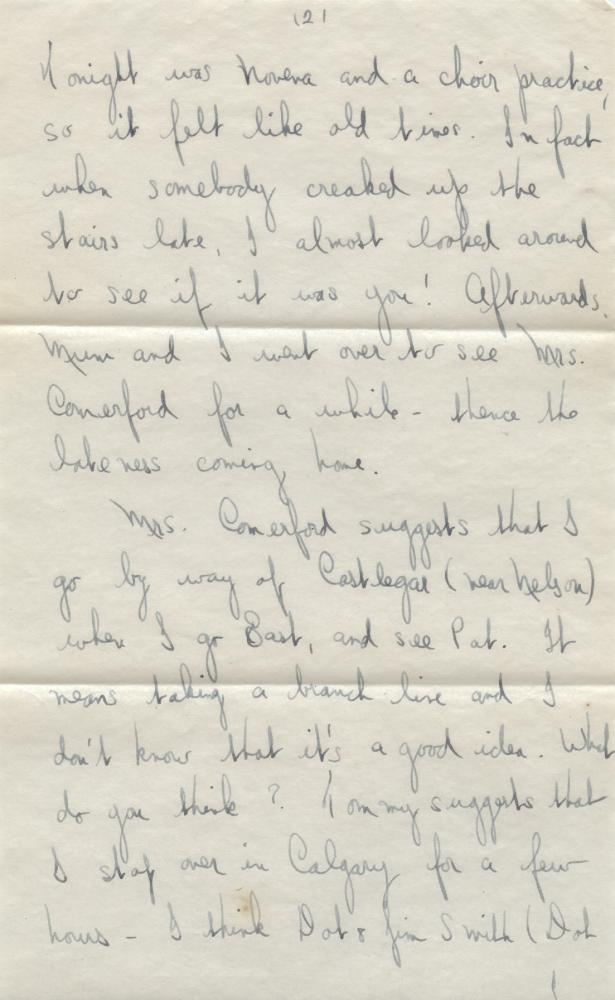 (2)
Tonight was Novena and a choir practice,
so it felt like old times. In fact
when somebody creaked up the
stairs late, I almost looked around
to see if it was you! Afterwards,
Mum and I went over to see Mrs.
Comerford for a while - thence the
lateness coming home.
Mrs. Comerford suggests that I
go by way of Castlegar (near Nelson)
when I go East, and see Pat. It
means taking a branch line and I
don't know that it's a good idea. What
do you think? Tommy suggests that
I stop over in Calgary for a few
hours - I think Dot & Jim Smith (Dot